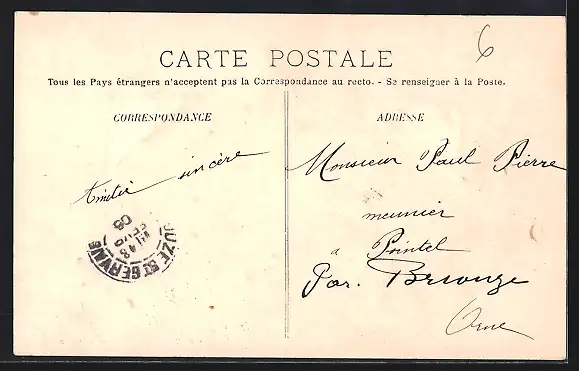 6
CARTE POSTALE
Tous les Pays étrangers n'acceptent pas la Correspondance au recto. - Se renseigner à la Poste.
CORRESPONDANCE
Amitié sincère
ADRESSE
Monsieur Paul Pierre
meunier
a Pointel
Par. Briouze
Orne
ST GERVAIS
08